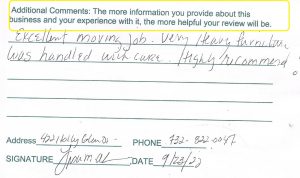 Additional Comments: The more information you provide about this
business and your experience with it, the more helpful your review will be.
Excellent moving job. Very Heavy furniture
was handled with care. Highly recommend
Address PHONE 732-822-0047
SIGNATURE DATE 9/23/22